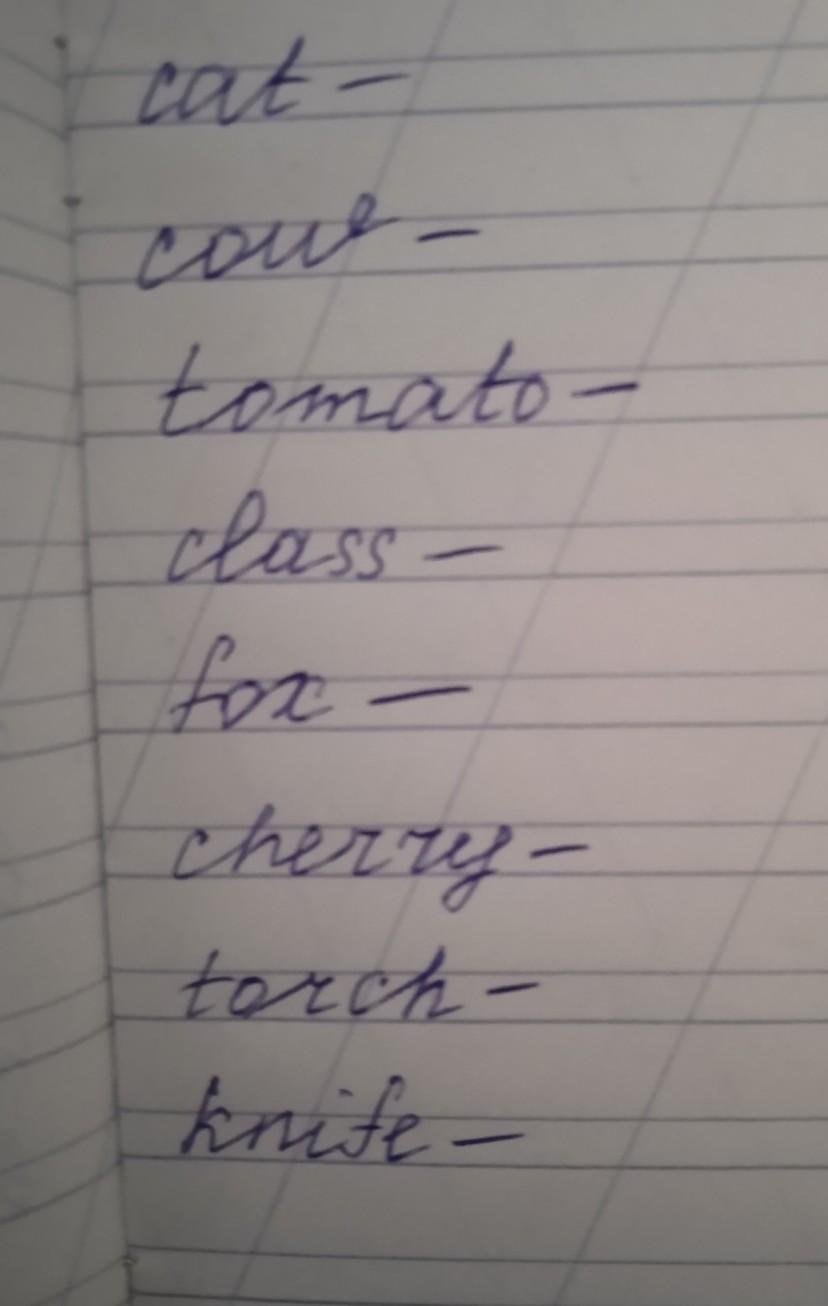 cat –
cow –
tomato –
class –
fox –
cherry –
torch –
knife –